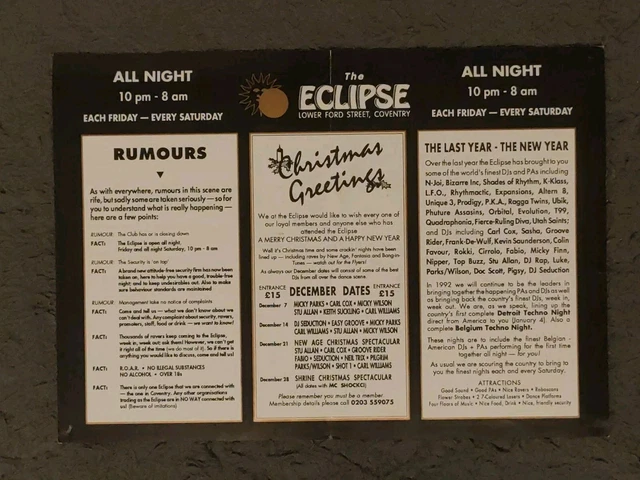 ALL NIGHT
10 pm - 8 am
EACH FRIDAY — EVERY SATURDAY
The
ECLIPSE
LOWER FORD STREET, COVENTRY
ALL NIGHT
10 pm - 8 am
EACH FRIDAY — EVERY SATURDAY
RUMOURS
As with everywhere, rumours in this scene are
rife, but sadly some are taken seriously — so for
you to understand what is really happening —
here are a few points:
RUMOUR: The Club has or is closing down
FACT: The Eclipse is open all night,
Friday and all night Saturday, 10 pm - 8 am
RUMOUR: The Security is 'on top'
FACT: A brand new attitude-free security firm has now been
taken on, here to help you have a good, trouble-free
night and to keep undesirables out. Also to make
sure behaviour standards are maintained
RUMOUR: Management take no notice of complaints
FACT: Come and tell us — what we don't know about we
can't deal with. Any complaint about security, rovers,
promoters, staff, food or drink — we want to know!
FACT: Thousands of ravers keep coming to the Eclipse,
week in, week out; ask them! However, we can't get
it right all of the time (we do most of it). So if there is
anything you would like to discuss, come and tell us!
FACT: R.O.A.R. • NO ILLEGAL SUBSTANCES
NO ALCOHOL • OVER 18s
FACT: There is only one Eclipse that we are connected with
— the one in Coventry. Any other organisations
trading as the Eclipse are in NO WAY connected with
us! (Beware of imitations)
Christmas
Greetings
We at the Eclipse would like to wish every one of
our loyal members and anyone else who has
attended the Eclipse
A MERRY CHRISTMAS AND A HAPPY NEW YEAR
Well it's Christmas time and some crackin' nights have been
lined up — including raves by New Age, Fantasia and Bang-in-
Tunes — watch out for the Flyers!
As always our December dates will consist of some of the best
DJs from all over the dance scene.
ENTRANCE
£15
DECEMBER DATES
ENTRANCE
£15
December 7 MICKY PARKS • CARL COX • MICKY WILSON
STU ALLAN • KEITH SUCKLING • CARL WILLIAMS
December 14 DJ SEDUCTION • EASY GROOVE • MICKY PARKS
CARL WILLIAMS • STU ALLAN • MICKY WILSON
December 21 NEW AGE CHRISTMAS SPECTACULAR
STU ALLAN • CARL COX • GROOVE RIDER
FABIO • SEDUCTION • NEIL TRIX • PILGRIM
PARKS/WILSON • SHOT 1 • CARL WILLIAMS
December 28 SHRINE CHRISTMAS SPECTACULAR
(All dates with MC SHOCKO)
Please remember you must be a member
Membership details please call 0203 559075
THE LAST YEAR - THE NEW YEAR
Over the last year the Eclipse has brought to you
some of the world's finest DJs and PAs including
N-Joi, Bizarre Inc, Shades of Rhythm, K-Klass,
L.F.O., Rhythmactic, Expansions, Altern 8,
Unique 3, Prodigy, P.K.A., Ragga Twins, Ubik,
Phuture Assasins, Orbital, Evolution, T99,
Quadraphonia, Fierce-Ruling Diva, Utah Saints;
and DJs including Carl Cox, Sasha, Groove
Rider, Frank-De-Wulf, Kevin Saunderson, Colin
Favour, Rokki, Cirrolo, Fabio, Micky Finn,
Nipper, Top Buzz, Stu Allan, DJ Rap, Luke,
Parks/Wilson, Doc Scott, Pigsy, DJ Seduction
In 1992 we will continue to be the leaders in
bringing together the happening PAs and DJs as well
as bringing back the country's finest DJs, week in,
week out. We are, as we speak, lining up the
country's first complete Detroit Techno Night
direct from America to you (January 4). Also a
complete Belgium Techno Night.
These nights are to include the finest Belgian -
American DJs + PAs performing for the first time
together all night — for you!
As usual we are scouring the country to bring to
you the finest nights each and every Saturday.
ATTRACTIONS
Good Sound • Good PAs • Nice Ravers • Roboscans
Flower Strobes • 2 7-Coloured Lasers • Dance Platforms
Four Floors of Music • Nice Food, Drink • Nice, friendly security